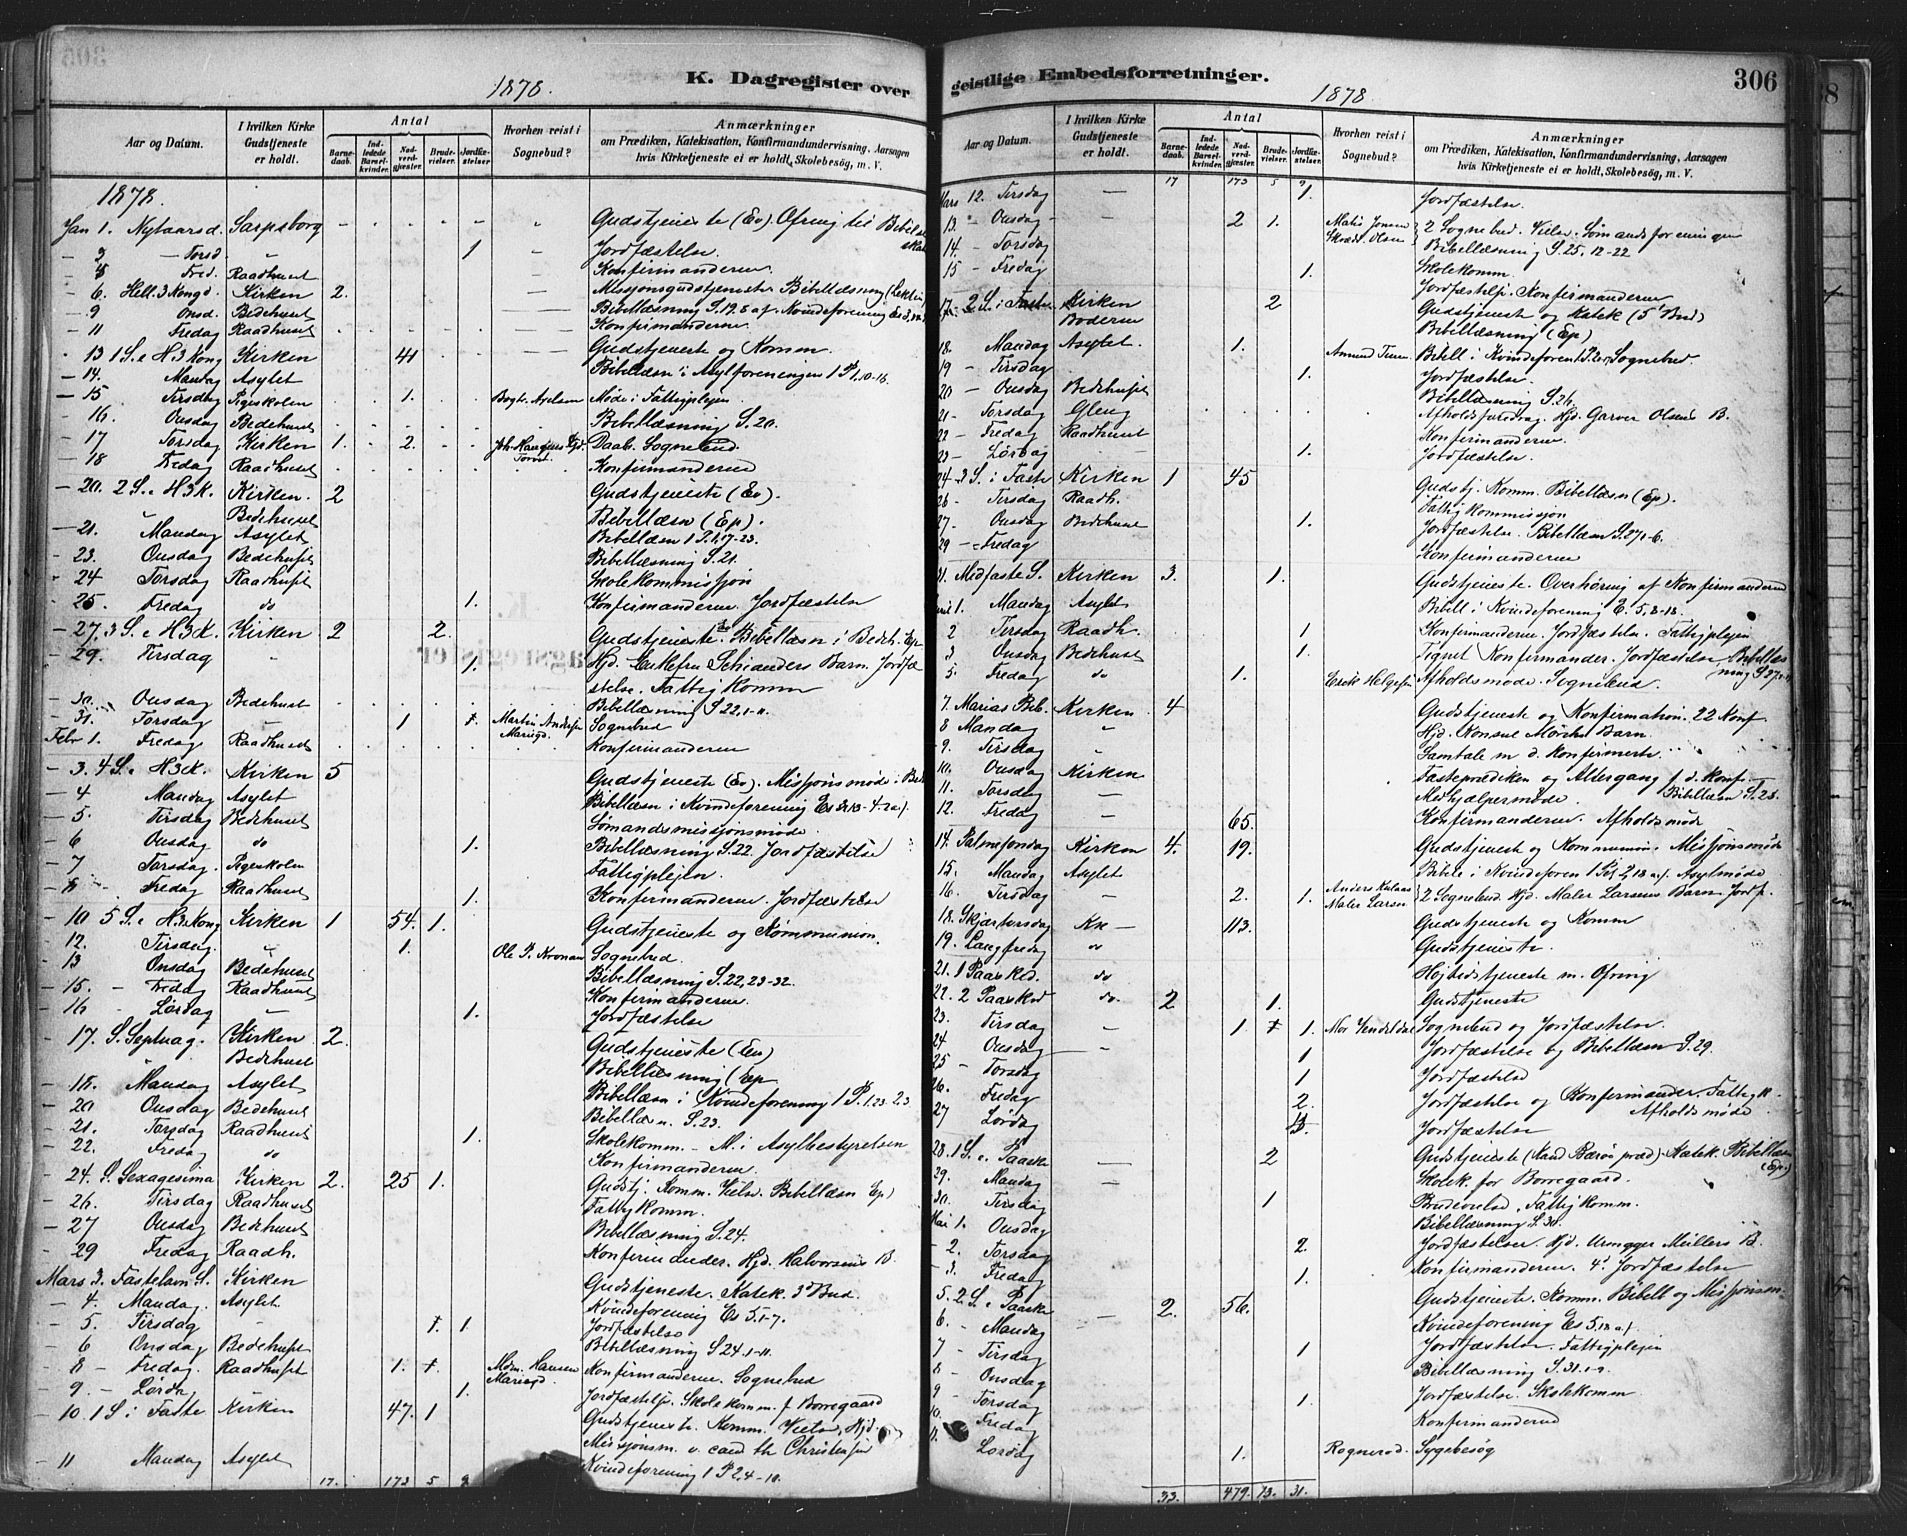 K. Dagregister over geistlige Embedsforretninger.
306
1878.
Aar og Datum.
I hvilken Kirke Gudstjeneste er holdt.
Antal
Barnedaab.
Indledede Barselkvinder.
Nadverdgjæster.
Brudevielser.
Jordfæstelser.
Hvorhen reist i Sognebud?
Anmærkninger
om Prædiken, Katekisation, Konfirmandundervisning, Aarsagen
hvis Kirketjeneste ei er holdt, Skolebesøg, m. V.
1878.
Jan 1. Nytaarsd. Sarpsborg Gudstjeneste (Ev) Ofring til Bibelselskab
- 3 - Torsd. 1 Jordfæstelse.
Fred. Raadhuset Konfirmanderne.
- 6. Hell. 3 Kongd. Kirken 2. Missjonsgudstjeneste Bibellæsning
- 9 Onsd. Bedehuset Bibellæsning
- 11 Fredag Raadhuset Konfirmanderne.
- 13 1 S. e H. 3 Kong Kirken 41 Gudstjeneste og Komm.
- 14. Mandag Asylet Bibellæsn i Asylforeningen 1 P. 1, 10-16.
- 15 Tirsdag Pigeskolen 1. Bogb. Axelsen Møde i Fattigplejen
- 16. Onsdag Bedehuset Bibellæsning S. 20.
- 17 Torsdag Kirken 1. 2. Daab. Sognebud.
- 18 Fredag Raadhuset Konfirmanderne
- 20. 2 S. e H3K. Kirken. 2 Gudstjeneste (Ev).
Bedehuset Bibellæsn (Ep).
- 21. Mandag Asylet Bibellæsn 1 P. 1, 17-23.
- 23. Onsdag Bedehuset Bibellæsning S. 21.
- 24 Torsdag Raadhuset Skolekommissjon
- 25. Fredag do 1. Konfirmanderne. Jordfæstelse
- 27. 3 S. e H3K. Kirken 2 2. Gudstjeneste Bibellæsn i Bedeh. Ep
- 29. Tirsdag 1. Hjd. Enkefru Schianders Barn. Jordfæ
stelse. Fattigkomm
- 30. Onsdag Bedehuset Bibellæsning S 22, 1-11.
- 31. Torsdag 1 Martin Andersen Sognebud
Febr 1. Fredag Raadhuset Konfirmanderne
- 3. 4 S. e H3K. Kirken 5 Gudstjeneste (Ev). Missjonsmøde i Bed
- 4 Mandag Asylet Bibellæsn i Kvindeforening
- 5. Tirsdag Bedehuset Sømandsmissjonsmøde.
- 6 Onsdag do 1. Bibellæsning S. 22. Jordfæstelse
- 7 Torsdag. Pigeskolen Fattigplejen.
- 8 Fredag Raadhuset 1. Konfirmanderne. Jordfæstelse
- 10 5 S. e H. 3 Kong Kirken 1 54. 1. Gudstjeneste og Kommunion.
- 12. Tirsdag. 1. Sognebud.
- 13 Onsdag Bedehuset Bibellæsning S. 22, 23-32.
- 15. - Fredag Raadhuset Konfirmanderne.
- 16 - Lørdag 1. Jordfæstelse
- 17. S. Septuag. Kirken 2. Gudstjeneste (Ev)
Bedehuset Bibellæsning (Ep
- 18. Mandag Asylet Bibellæsn i Kvindeforening 1 P. 1.23-2.3
- 20 Onsdag Bedehuset Bibellæsn. S. 23.
- 21. Torsdag Raadhuset 1. Skolekomm. - M. i Asylbestyrelsen
- 22. Fredag do Konfirmanderne.
- 24. S. Sexagesima Kirken 2. 25 1. Gudstj. Komm. Vielse. Bibellæsn Ep)
- 26. Tirsdag Raadhuset Fattigkomm.
- 27 Onsdag Bedehuset Bibellæsning S. 24.
- 29 Fredag Raadh. Konfirmander. Hjd. Halvorsens B.
Mars 3. Fastelavn S. Kirken Gudstjeneste. Katek. 3 Bud.
- 4. Mandag. Asylet Kvindeforening Es 5. 1-7.
- 5. Tirsdag 1. Jordfæstelse
- 6 Onsdag Bedehuset Bibellæsning S 24. 1-11.
- 8 - Fredag. Raadhuset 1. Mdm. Hansen Konfirmanderne. Sognebud
- 9. - Lørdag 1. Jordfæstelse. Skolekomm. f Borregaard
- 10. 1 S i Faste Kirken 47. 1 Gudstjeneste. Komm. Vielse. Hjd.
Missjonsm. v. cand th Christensen
- 11 Mandag Asylet Kvindeforening 1 P 2, 4-10.
17. 173 5 9
1878
17 173 5 9
Mars 12. Tirsdag 1. Jordfæstelse.
13. - Onsdag 2 1. 2 Sognebud. Vielse. Sømandsforeningen
14. - Torsdag Bibellæsning S. 25, 12-22
15 - Fredag 1. Skolekomm.
Jordfæstelse. Konfirmanderne
17. 2 S. i Faste Kirken 2 Gudstjeneste og Katek (5 Bud)
Bibellæsning (Ep)
18. Mandag Asylet. 1. Sognebud.
19 - Tirsdag 1. Jordfæstelse.
20 - Onsdag Bedehuset Bibellæsning S. 26.
21 - Torsdag Gleng Afholdsforedrag. Hjd. Garver Olsens B.
22 - Fredag Raadhuset Konfirmanderne.
23 - Lørdag 1. Jordfæstelse.
24 - 3 S. i Faste Kirken 1 45 Gudstj. Komm. Bibellæsn (Ep)
26 - Tirsdag Raadh. Fattigkommissjon
27. Onsdag Bedehuset 1. Jordfæstelse. Bibellæsn S. 27, 1-6.
29 - Fredag Konfirmanderne
31. Midfaste S. Kirken 3. 1. Gudstjeneste. Overhøring af Konfirmanderne
April 1. Mandag Asylet Bibell i Kvindeforening
2 Tirsdag Raadh. 1 Konfirmanderne. Jordfæstelse. Fattigplejen
3 Onsdag Bedehuset 1. Konfirmander. Jordfæstelse Bibellæsning
5. Fredag do 1. Erek Helgesen Afholdsmøde. Sognebud.
7. Marias Beb. Kirken 4 Gudstjeneste og Konfirmation. 22 Konf
8 Mandag Hjd. Konsul Mørchs Barn.
9. Tirsdag Samtale m d. Konfirmerte.
10. Onsdag Kirken Fasteprædiken og Altergang f. d. Konf.
11. Torsdag Medhjælpermøde. Bibellæsn S. 28.
12. Fredag 65. Konfirmanderne. Afholdsmøde
14. Palmesøndag Kirken 4. 19. Gudstjeneste og Kommunion. Missjonsmøde
15. Mandag Asylet Asylmøde
16. Tirsdag 2. 1. Maler Larsen 2 Sognebud. Hjd. Maler Larsens Barn. Jordf.
18. Skjærtorsdag Kk 113. Gudstjeneste og Komm
19. Langfredag do Gudstjeneste.
21. 1 Paaskd. do Højtidstjeneste m. Ofring
22. 2 Paaskd do. 2 1. Gudstjeneste
23. Tirsdag 1 1. Sognebud og Jordfæstelse.
24 Onsdag 1 Jordfæstelse og Bibellæsn S. 29.
25 - Torsdag 1 Jordfæstelse
26. Fredag 2. Jordfæstelse og Konfirmander. Fattigk.
Afholdsmøde
27 Lørdag Jordfæstelse
28. 1 S. e. Paaske 2 Gudstjeneste (Kand Bærøe præd). Katek. Bibellæsn (Ep.)
29. Mandag Skolek. for Borregaard.
30. Tirsdag 1 Brudevielse. Fattigkomm.
Mai 1. Onsdag Bibellæsning S. 30.
- 2. Torsdag 2. Jordfæstelser. Hjd. Urmager Müllers B.
- 3. Fredag 1. Konfirmanderne. Jordfæstelse
5. 2 S. e Paaske 2. 56. Gudstjeneste. Komm. Bibell og Missjonsm.
6. - Mandag Kvindeforening Es 5,
7 - Tirsdag 1 Jordfæstelse. Fattigplejen
8 - Onsdag Bibellæsning S. 31. 1-9.
9 - Torsdag 1. Jordfæstelse. Skolekomm
10. Fredag Konfirmanderne
11. Lørdag 1. Rognerød. Sygebesøg
33. 479. 13. 31.